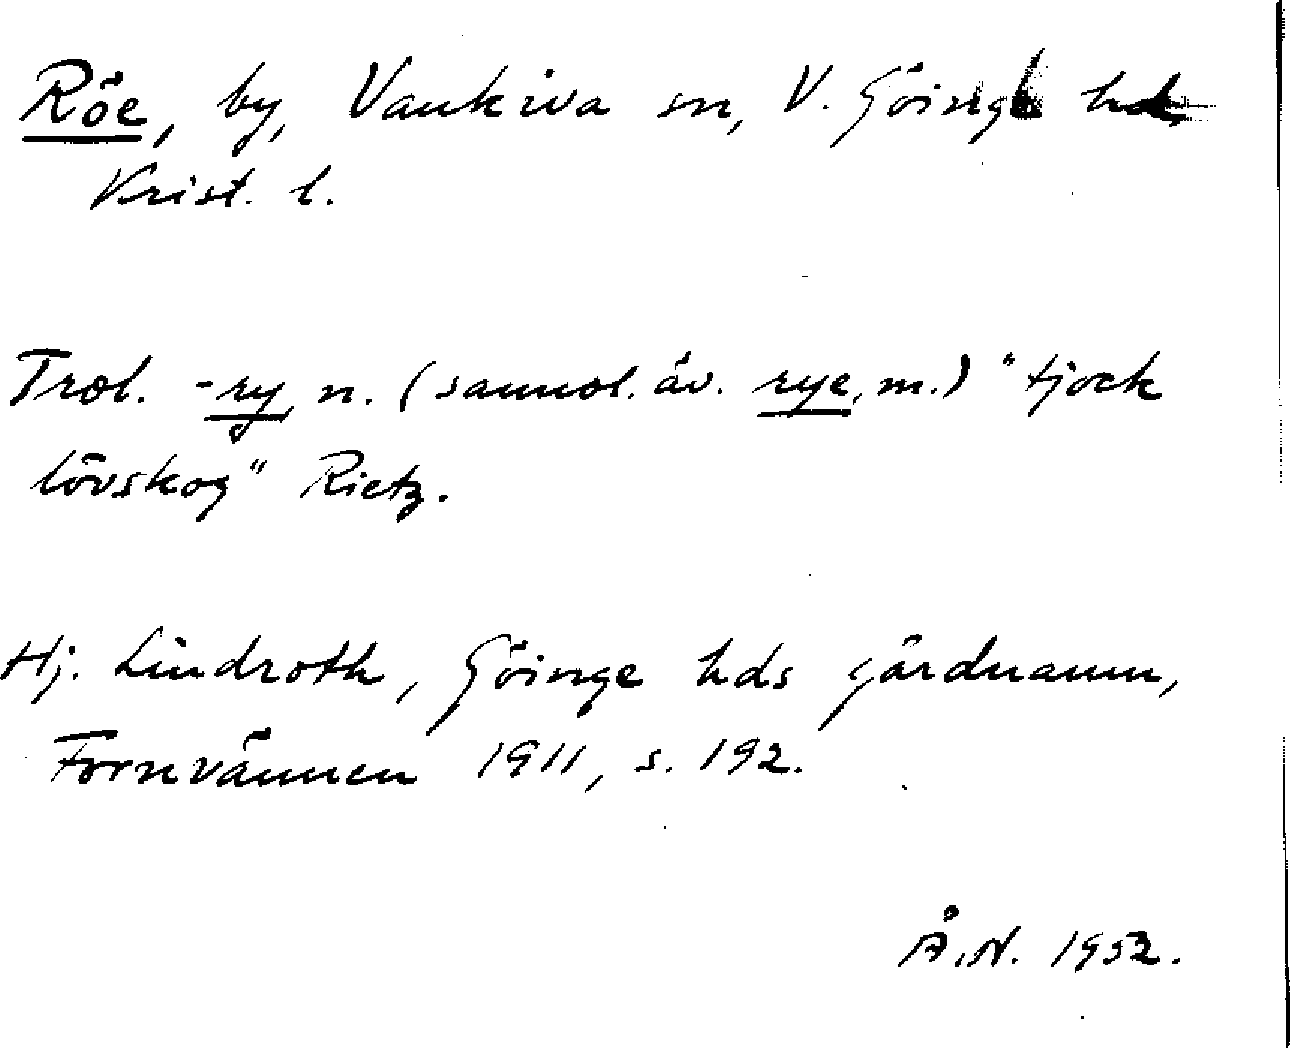 Röe, by, Vankiva sn, V. Göinge hd,
Krist. l.
Trol. -ry, n. (sannol. äv. rye, m.) "tjock
lövskog" Rietz.
Hj. Lindroth, Göinge hds gårdnamn,
Fornvännen 1911, s. 192.
Å.N. 1952.